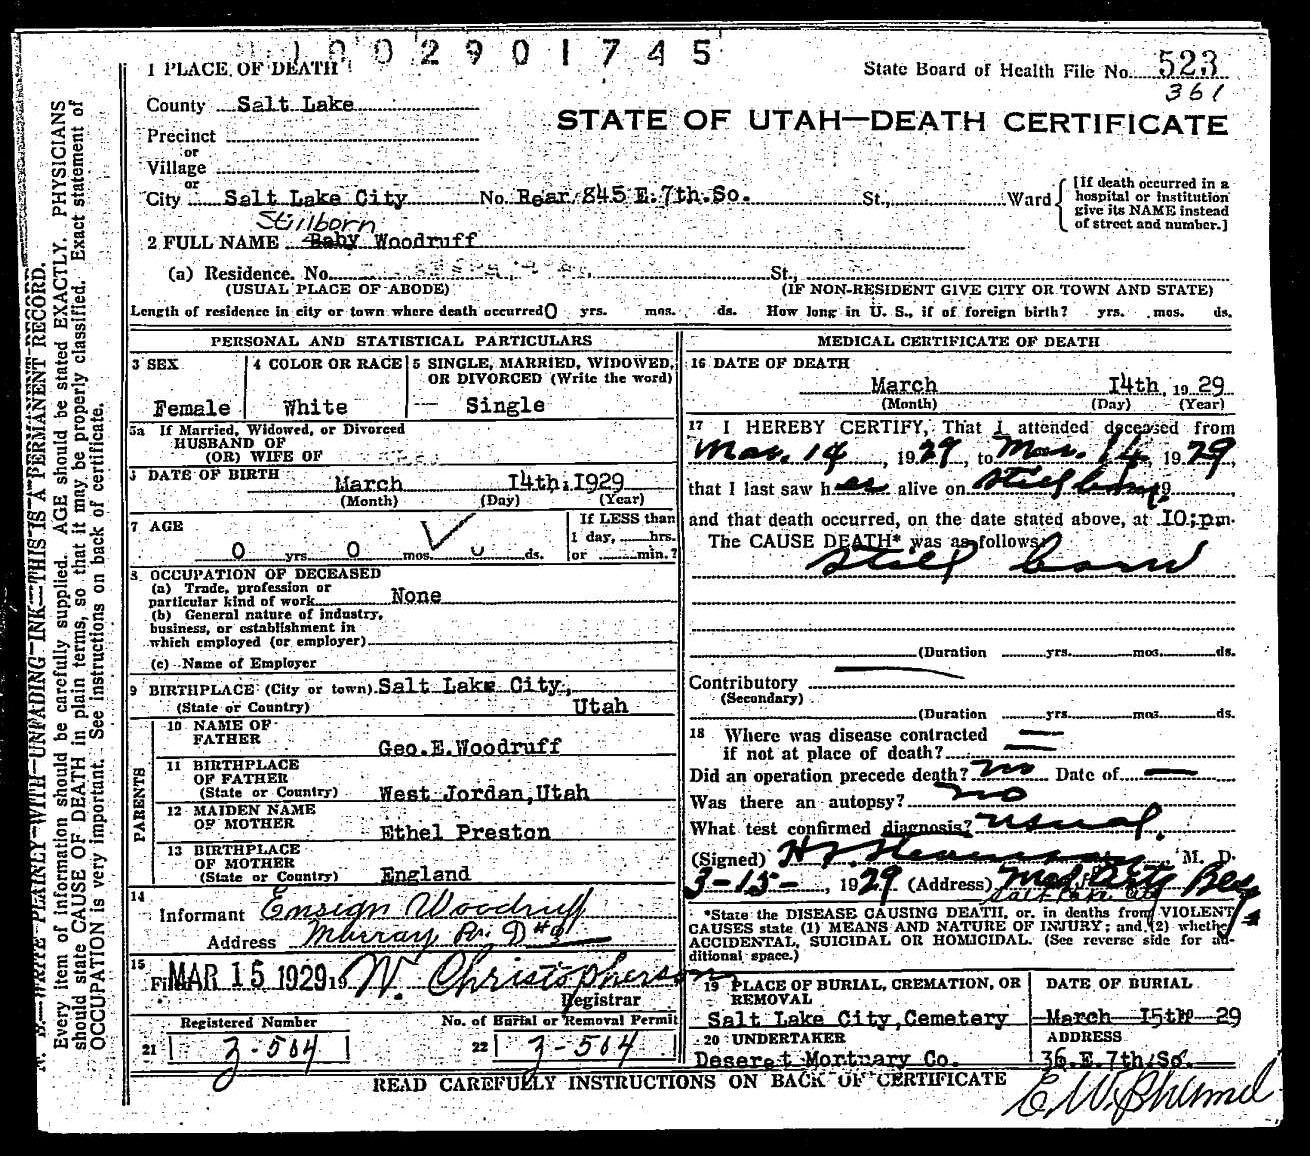 1002901745
1 PLACE OF DEATH
State Board of Health File No. 523
361
County Salt Lake
STATE OF UTAH—DEATH CERTIFICATE
Precinct
or
Village
or
City Salt Lake City No. Rear 845 E. 7th. So. St., Ward [If death occurred in a hospital or institution give its NAME instead of street and number.]
Stillborn
2 FULL NAME Baby Woodruff
(a) Residence. No. St.,
(USUAL PLACE OF ABODE) (IF NON-RESIDENT GIVE CITY OR TOWN AND STATE)
Length of residence in city or town where death occurred 0 yrs. mos. ds. How long in U. S., if of foreign birth? yrs. mos. ds.
PERSONAL AND STATISTICAL PARTICULARS
3 SEX
Female
4 COLOR OR RACE
White
5 SINGLE, MARRIED, WIDOWED,
OR DIVORCED (Write the word)
Single
5a If Married, Widowed, or Divorced
HUSBAND OF
(OR) WIFE OF
DATE OF BIRTH
March 14th. 1929
(Month) (Day) (Year)
7 AGE
0 yrs. 0 mos. 0 ds.
If LESS than
1 day, hrs.
or min.?
8 OCCUPATION OF DECEASED
(a) Trade, profession or
particular kind of work None
(b) General nature of industry,
business, or establishment in
which employed (or employer)
(c) Name of Employer
9 BIRTHPLACE (City or town) Salt Lake City,
(State or Country) Utah
PARENTS
10 NAME OF
FATHER Geo.E.Woodruff
11 BIRTHPLACE
OF FATHER
(State or Country) West Jordan,Utah
12 MAIDEN NAME
OF MOTHER Ethel Preston
13 BIRTHPLACE
OF MOTHER
(State or Country) England
14
Informant Ensign Woodruff
Address Murray R. D #
15
Filed MAR 15 1929 19 W. Christopherson
Registrar
Registered Number No. of Burial or Removal Permit
21 3-564 22 3-564
MEDICAL CERTIFICATE OF DEATH
16 DATE OF DEATH
March 14th, 1929
(Month) (Day) (Year)
17 I HEREBY CERTIFY, That I attended deceased from
Mar. 14, 1929, to Mar. 14, 1929,
that I last saw her alive on still born, 19
and that death occurred, on the date stated above, at 10:pm.
The CAUSE DEATH* was as follows:
still born
(Duration yrs. mos. ds.
Contributory
(Secondary)
(Duration yrs. mos. ds.
18 Where was disease contracted
if not at place of death?
Did an operation precede death? no Date of —
Was there an autopsy? no
What test confirmed diagnosis? usual.
(Signed) M. D.
3-15-, 1929 (Address)
*State the DISEASE CAUSING DEATH, or, in deaths from VIOLENT
CAUSES state (1) MEANS AND NATURE OF INJURY; and (2) whether
ACCIDENTAL, SUICIDAL OR HOMICIDAL. (See reverse side for ad-
ditional space.)
19 PLACE OF BURIAL, CREMATION, OR
REMOVAL
Salt Lake City,Cemetery
DATE OF BURIAL
March 15th 29
20 UNDERTAKER
Deseret Mortuary Co.
ADDRESS
36.E.7th.So.
READ CAREFULLY INSTRUCTIONS ON BACK OF CERTIFICATE
N. B.—WRITE PLAINLY—WITH—UNFADING—INK—THIS IS A PERMANENT RECORD.
Every item of information should be carefully supplied. AGE should be stated EXACTLY. PHYSICIANS
should state CAUSE OF DEATH in plain terms, so that it may be properly classified. Exact statement of
OCCUPATION is very important. See instructions on back of certificate.